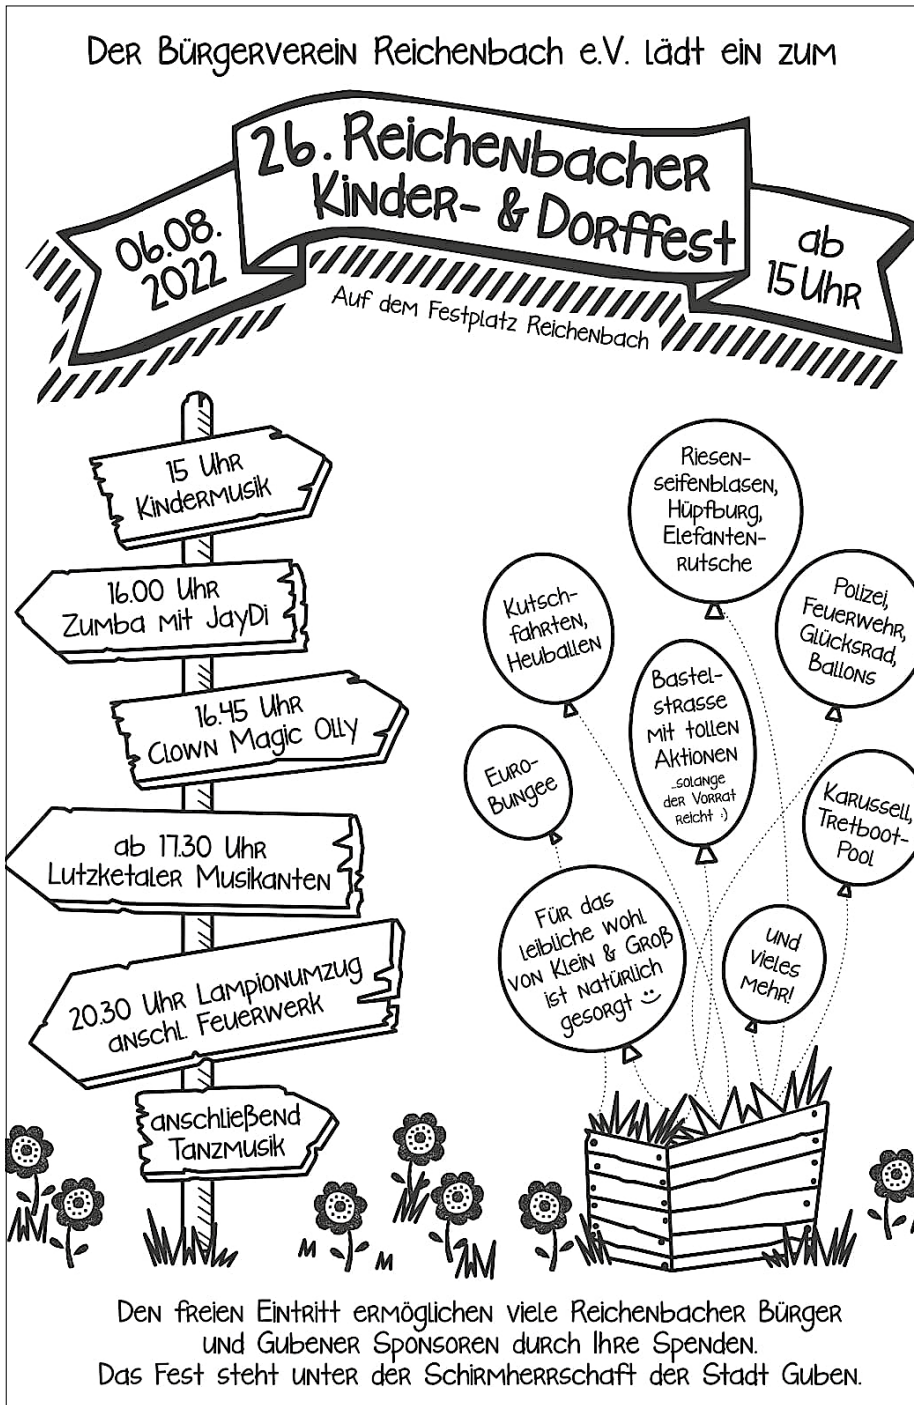 Der Bürgerverein Reichenbach e.V. lädt ein zum
26. Reichenbacher
Kinder- & Dorffest
06.08.
2022
ab
15 Uhr
Auf dem Festplatz Reichenbach
15 Uhr
Kindermusik
16.00 Uhr
Zumba mit JayDi
16.45 Uhr
Clown Magic Olly
ab 17.30 Uhr
Lutzketaler Musikanten
20.30 Uhr Lampionumzug
anschl. Feuerwerk
anschließend
Tanzmusik
Riesen-
seifenblasen,
Hüpfburg,
Elefanten-
rutsche
Kutsch-
fahrten,
Heuballen
Polizei,
Feuerwehr,
Glücksrad,
Ballons
Bastel-
strasse
mit tollen
Aktionen
...solange
der Vorrat
reicht :)
Euro-
Bungee
Karussell,
Tretboot-
Pool
Für das
leibliche Wohl
von Klein & Groß
ist natürlich
gesorgt
und
vieles
mehr!
Den freien Eintritt ermöglichen viele Reichenbacher Bürger
und Gubener Sponsoren durch Ihre Spenden.
Das Fest steht unter der Schirmherrschaft der Stadt Guben.